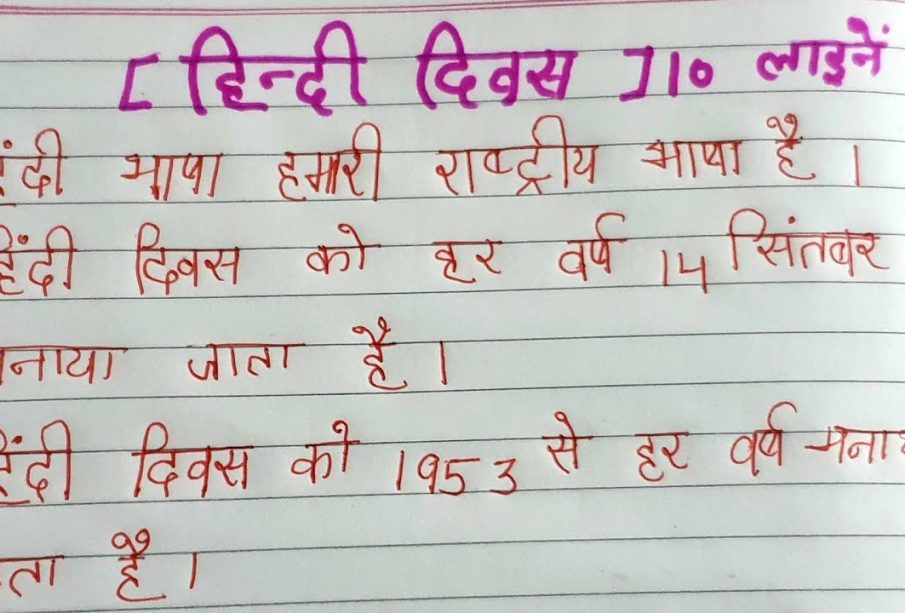 [ हिन्दी दिवस ] 10 लाइनें
हिंदी भाषा हमारी राष्ट्रीय भाषा है ।
हिंदी दिवस को हर वर्ष 14 सितंबर
मनाया जाता है ।
हिंदी दिवस को 1953 से हर वर्ष मनाया
जाता है ।